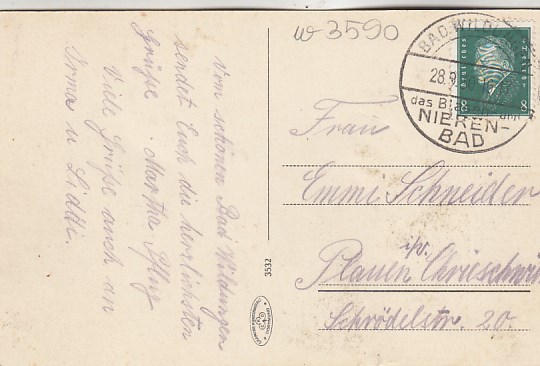 Vom schönen Bad Wildungen
sendet Euch die herzlichsten
Grüße. Martha Pflug
Viele Grüße auch an
Irma u Liddi.
w 3590
BAD WILD
28.9
das
NIEREN-
BAD
Deutsches Reich
8 8
Frau
Emmi Schneider
i/V.
Plauen Chrieschwitz
Schrödelstr. 20.
3532